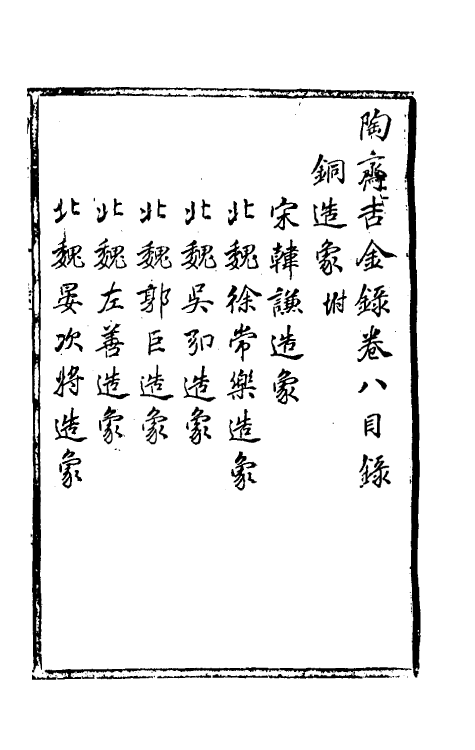 陶齋吉金錄卷八目錄
銅造象坿
宋韓謙造象
北魏徐常樂造象
北魏吳弘造象
北魏郭巨造象
北魏左善造象
北魏晏次將造象